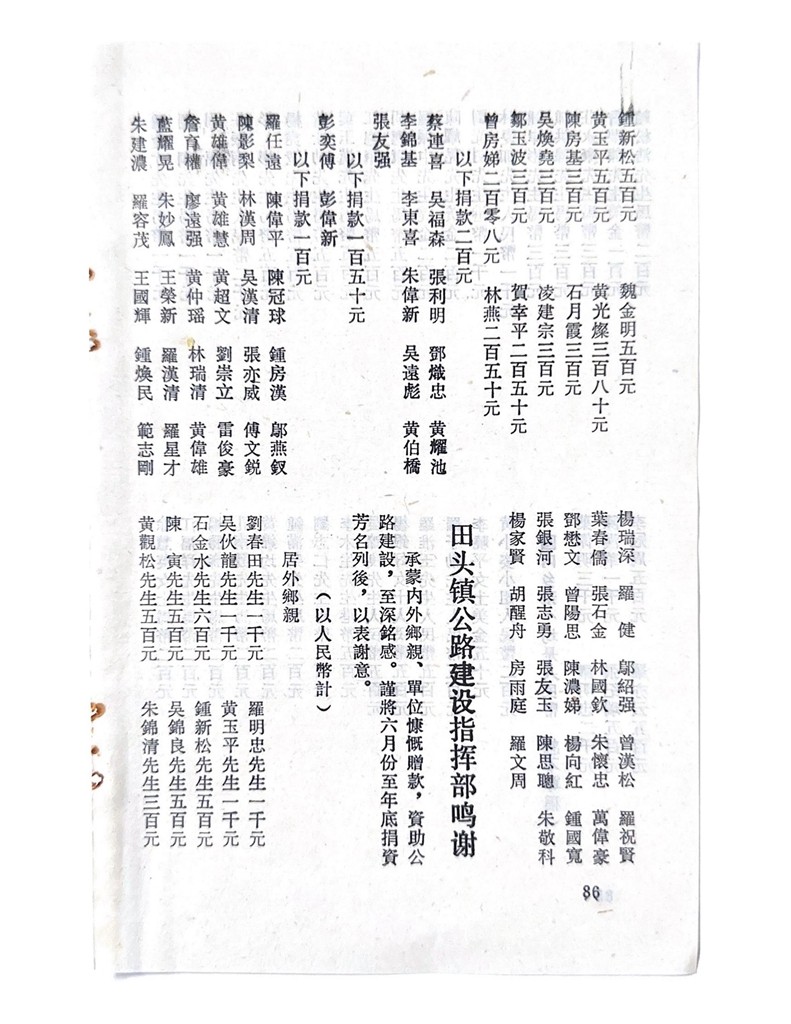 鍾新松五百元　魏金明五百元
黃玉平五百元　黃光燦三百八十元
陳房基三百元　石月霞三百元
吳煥堯三百元　凌建宗三百元
鄒玉波三百元　賀幸平二百五十元
曾房娣二百零八元　林燕二百五十元
以下捐款二百元
蔡連喜　吳福森　張利明　鄧熾忠　黃耀池
李錦基　李東喜　朱偉新　吳遠彪　黃伯橋
張友强
以下捐款一百五十元
彭奕傅　彭偉新
以下捐款一百元
羅任遠　陳偉平　陳冠球　鍾房漢　鄔燕釵
陳影梨　林漢周　吳漢清　張亦威　傅文銳
黃雄偉　黃雄慧　黃超文　劉崇立　雷俊豪
詹育權　廖遠强　黃仲瑶　林瑞清　黃偉雄
藍耀晃　朱妙鳳　王榮新　羅漢清　羅星才
朱建濃　羅容茂　王國輝　鍾煥民　範志剛
楊瑞深　羅　健　鄔紹强　曾漢松　羅祝賢
葉春儒　張石金　林國欽　朱懷忠　萬偉豪
鄧懋文　曾陽思　陳濃娣　楊向紅　鍾國寬
張銀河　張志勇　張友玉　陳思聰　朱敬科
楊家賢　胡醒舟　房雨庭　羅文周
田头镇公路建设指挥部鸣谢
承蒙内外鄉親、單位慷慨贈款，資助公
路建設，至深銘感。謹將六月份至年底捐資
芳名列後，以表謝意。
（以人民幣計）
居外鄉親
劉春田先生一千元　羅明忠先生一千元
吳伙龍先生一千元　黃玉平先生一千元
石金水先生六百元　鍾新松先生五百元
陳　寅先生五百元　吳錦良先生五百元
黃觀松先生五百元　朱錦清先生三百元
86